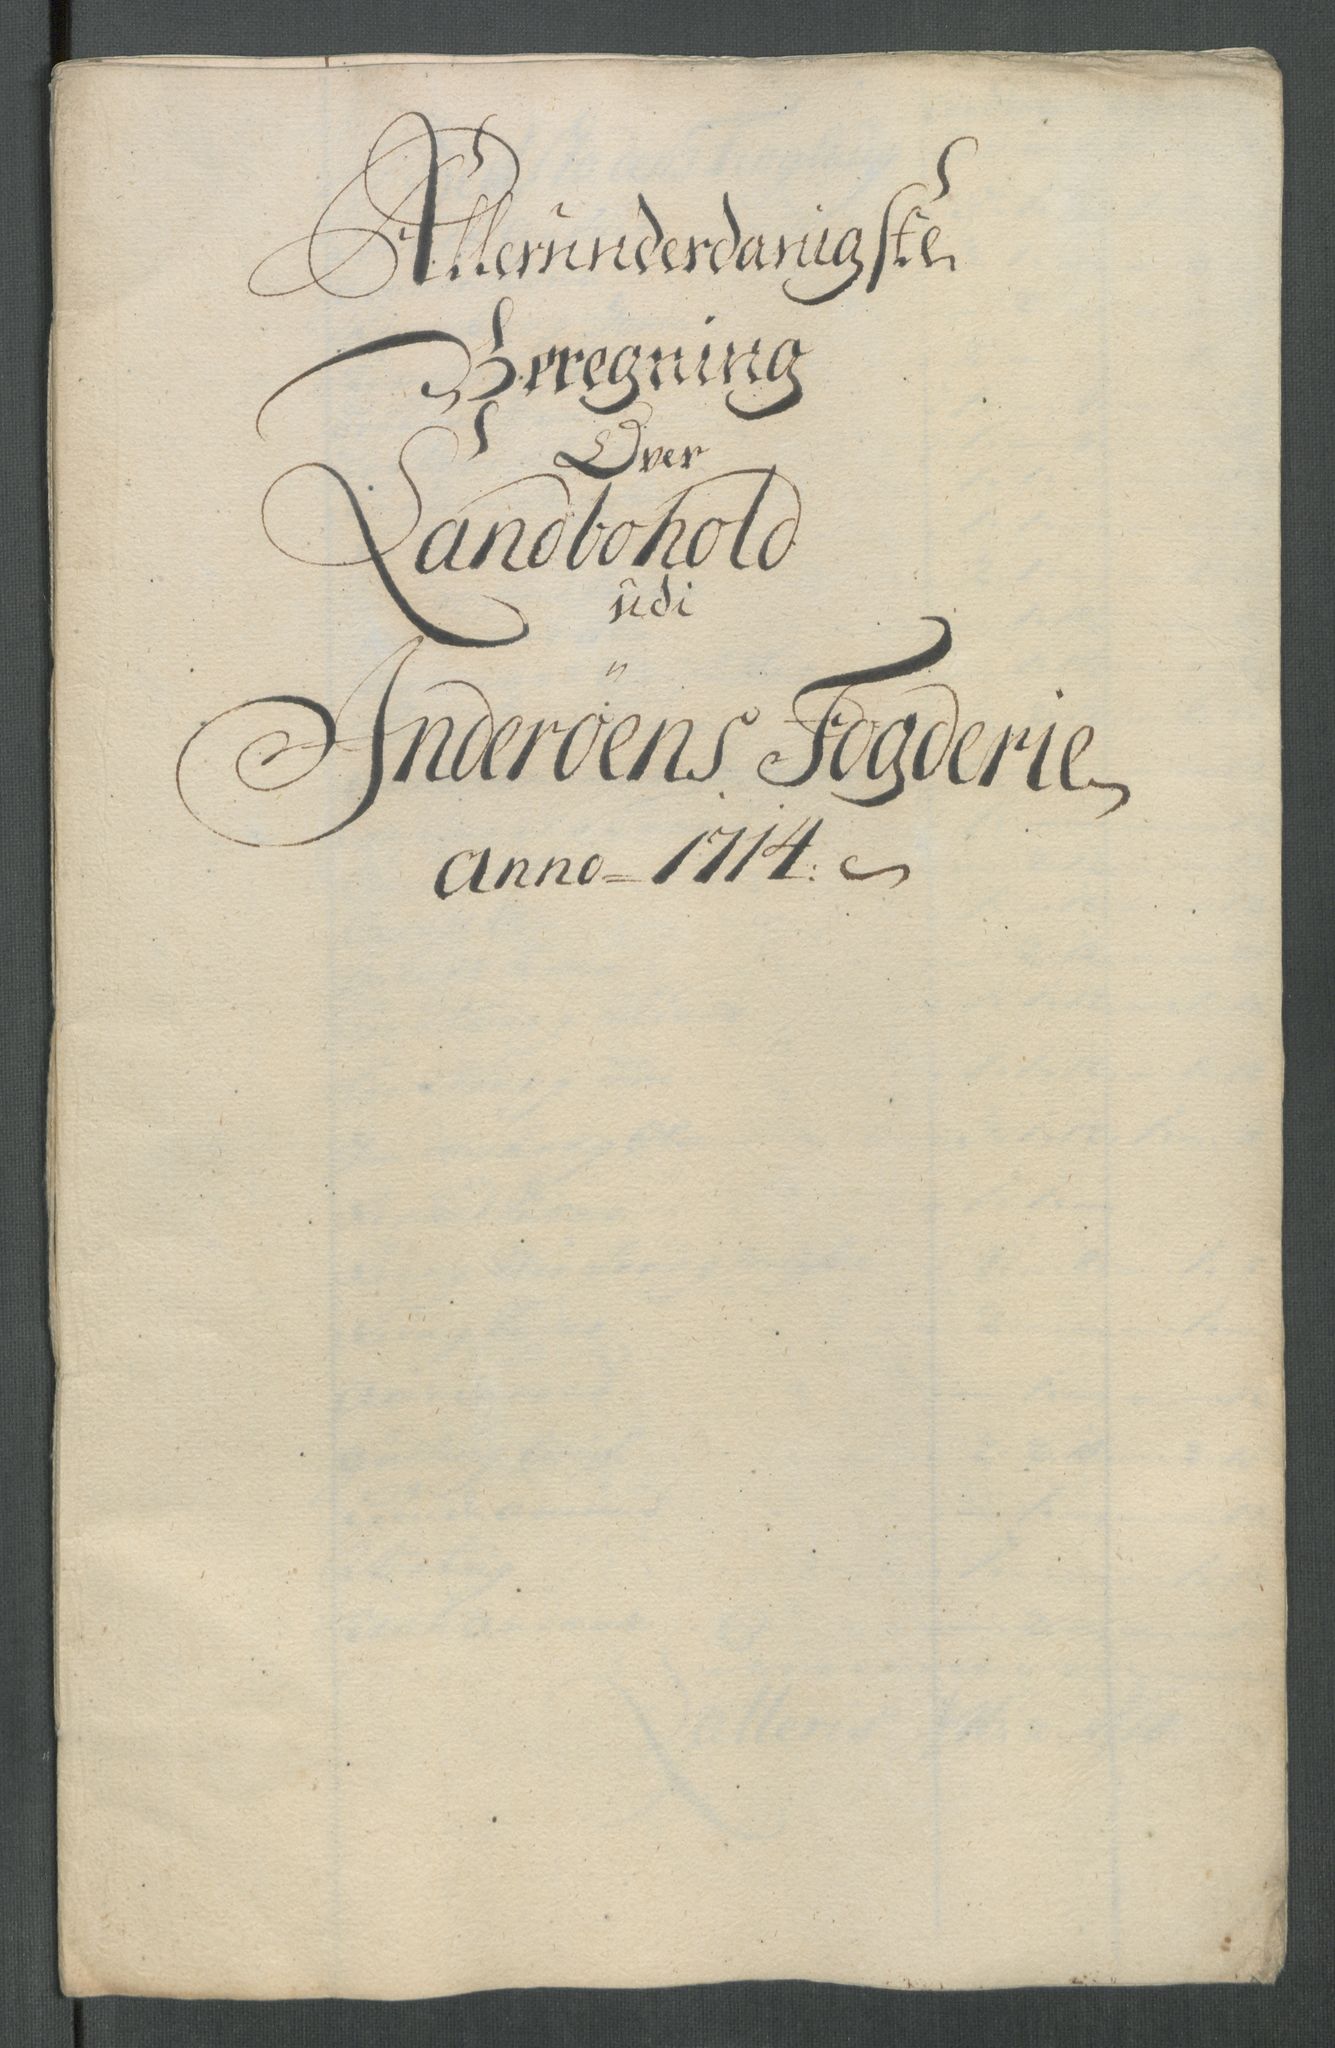 Allerunderdanigste
Beregning
Over
Landbohold
udi
Inderöens Fogderie
Anno = 1714.